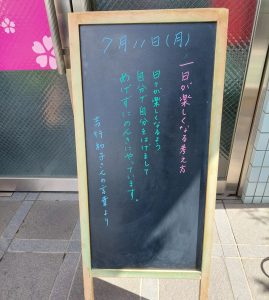 7月11日(月)
一日が楽しくなる考え方
日々が楽しくなるよう
自分で自分をはげまして
めげずにのんきにやっています。
吉行和子さんの言葉より